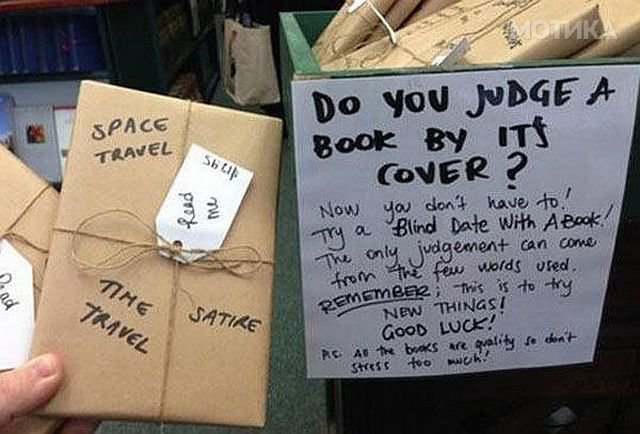 МОТИКА
SPACE
TRAVEL
Read
me
TIME
TRAVEL
SATIRE
Read
DO YOU JUDGE A
BOOK BY ITS
COVER?
Now you don't have to!
Try a Blind Date With A Book!
The only judgement can come
from the few words used.
REMEMBER; this is to try
NEW THINGS!
GOOD LUCK!
P.S. All the books are quality so don't
stress too much!